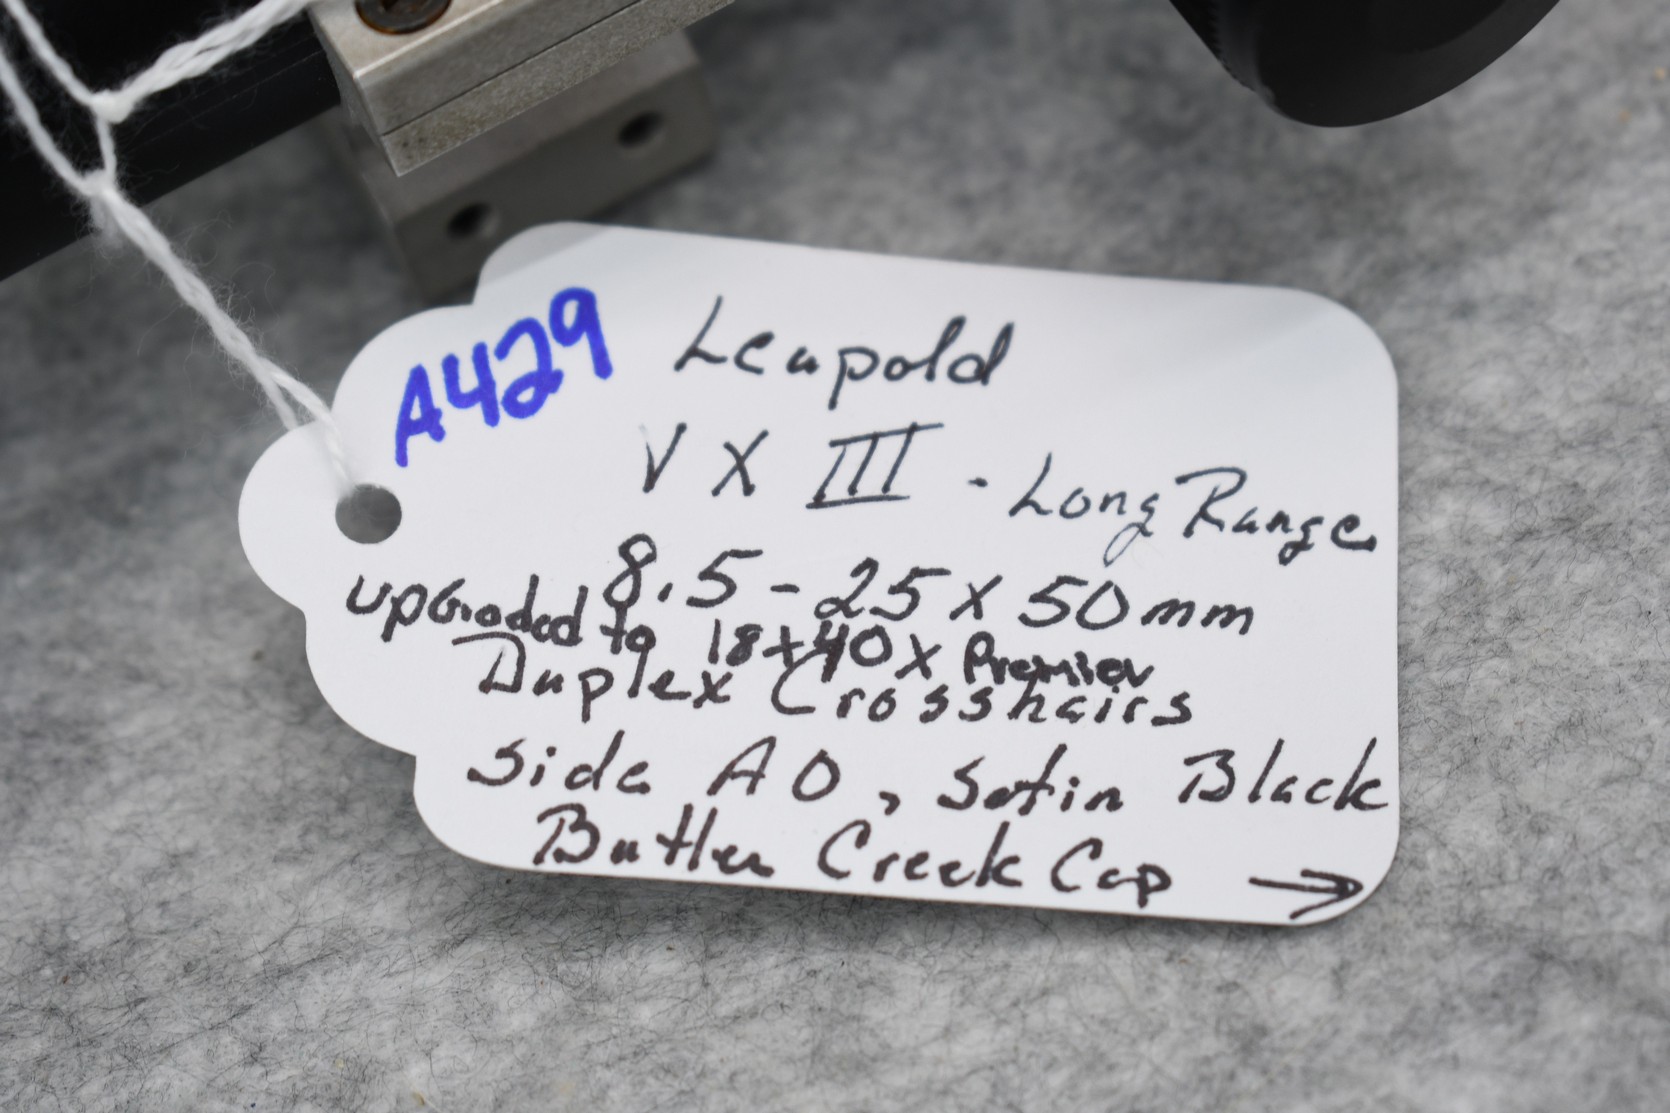 A429
Leupold
VX III - Long Range
8.5-25x50mm
upGraded to 18x40x Premier
Duplex Crosshairs
Side AO, Satin Black
Butler Creek Cap →